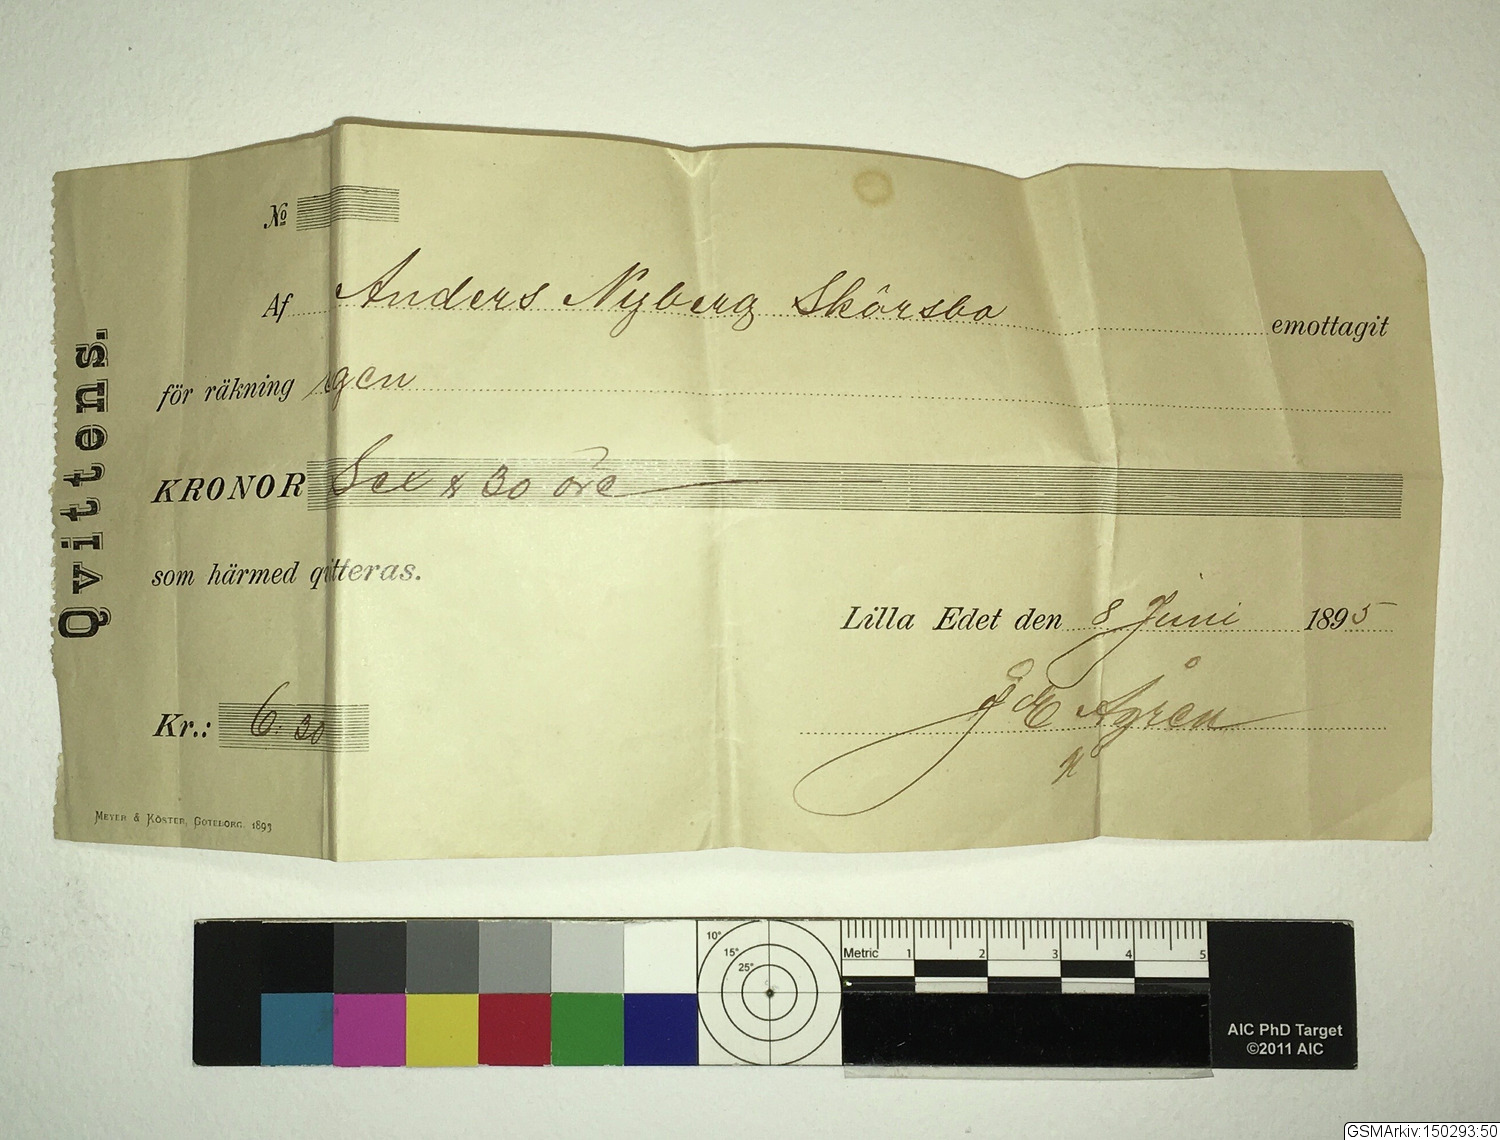 Qvittens.
№
Af Anders Nyberg Skörsbo emottagit
för räkning egen
KRONOR Sex & 30 öre
som härmed qvitteras.
Lilla Edet den 8 Juni 1895
Kr.: 6: 30
J E Ågren
MEYER & KÖSTER, GÖTEBORG. 1893
10° 15° 25°
Metric 1 2 3 4 5
AIC PhD Target
©2011 AIC
GSMArkiv:150293:50